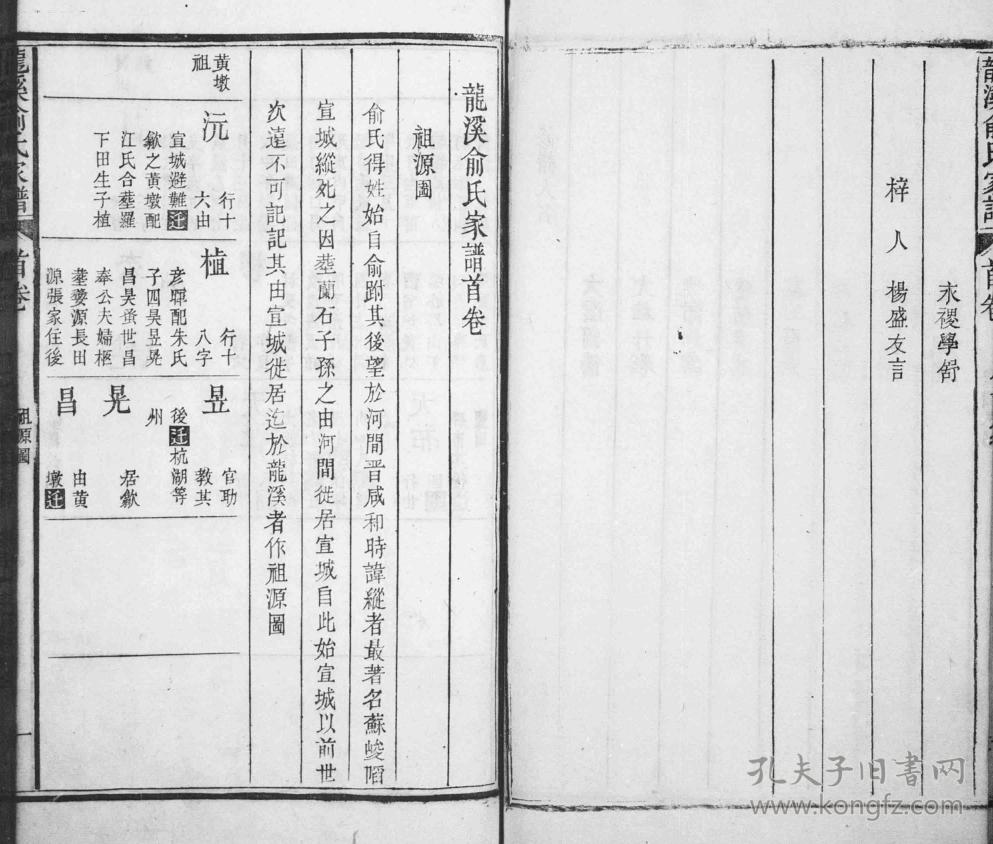 永禝學舒
梓人 楊盛友言
龍溪俞氏家譜首卷
祖源圖
俞氏得姓始自俞跗其後望於河間晋咸和時諱縱者最著名蘇峻
宣城縱死之因塟蘭石子孫之由河間徙居宣城自此始宣城以前世
次遠不可記記其由宣城徙居迄於龍溪者作祖源圖
黃墩
祖
沅
行十
六由
宣城避難迁
歙之黃墩配
江氏合塟羅
下田生子植
植
行十
八字
彦配朱氏
子四昊昱晃
昌昊蚤世昌
奉公夫婦柩
塟婺源長田
源張家住後
昱
官助
教其
後迁杭湖等
州
晃
居歙
昌
由黄
墩迁
龍溪俞氏家譜
首卷
祖源圖
一
孔夫子旧书网
www.kongfz.com